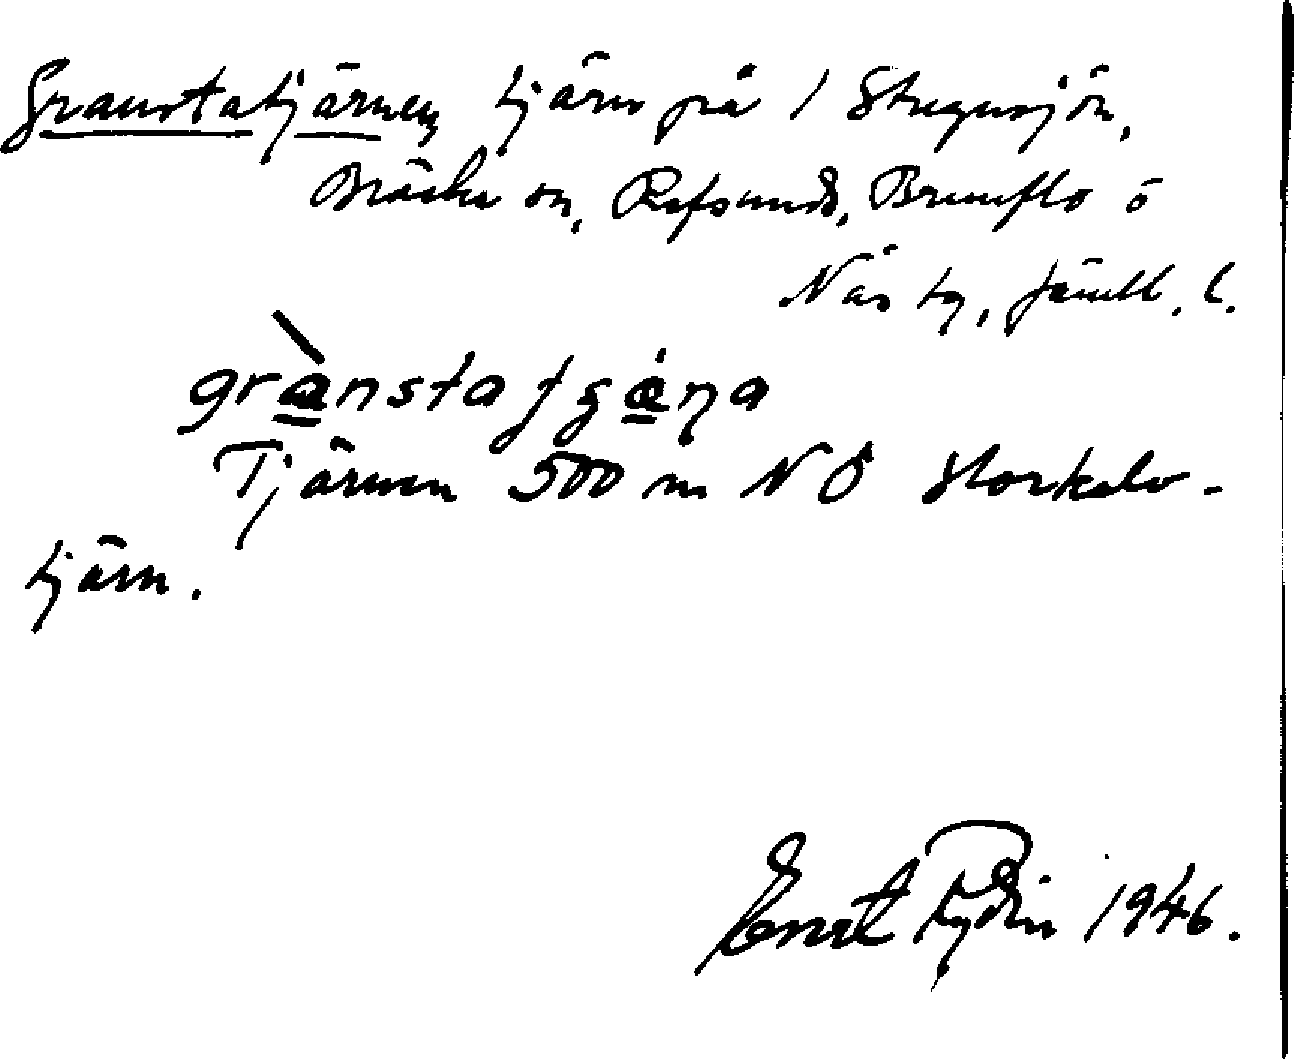 Granstatjärnen, tjärn på 1 Stugusjön,
Bräcke sn, Refsunds, Brunflo o
Näs tg, Jämtl. l.
grànstaʃgǽɳa
Tjärnen 500 m NÖ Storkalv-
tjärn.
Ernst Rydin 1946.